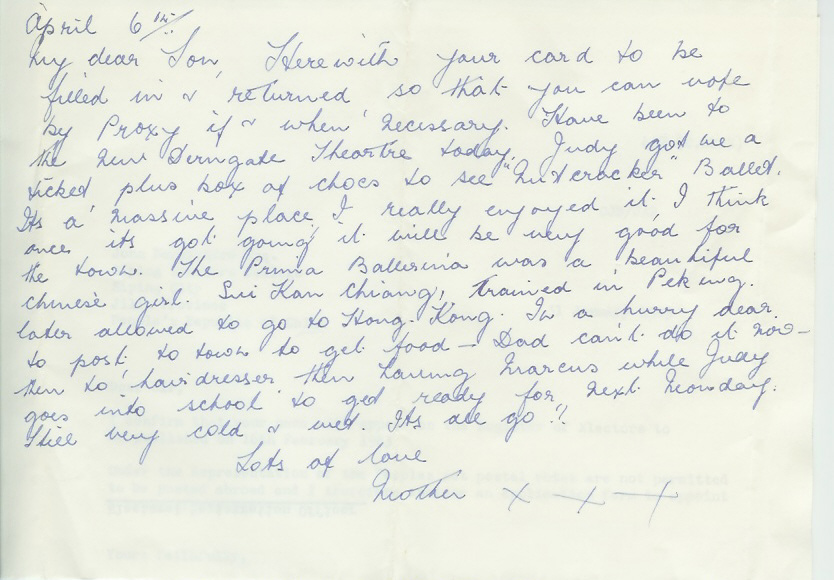 April 6th
My dear Son, Herewith your card to be
filled in & returned so that you can vote
by Proxy if & when necessary. Have been to
the new Derngate Theartre today, Judy got me a
ticket, plus box of chocs to see "Nutcracker" Ballet.
Its a massive place, I really enjoyed it. I think
once its got going it will be very good for
the town. The Prima Ballerina was a beautiful
chinese girl. Lui Kan Chiang, trained in Peking.
later allowed to go to Hong Kong. In a hurry dear.
to post, to town to get food – Dad can't do it now –
then to hairdresser then having Marcus while Judy
goes into school to get ready for next Monday.
Still very cold & wet. Its all go!!
Lots of love
Mother x x x